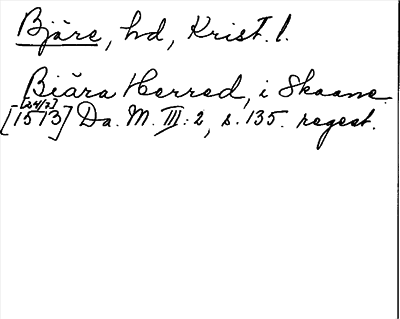 Bjäre, hd, Krist. l.
Biära Herred, i Skaane.
[24/2]
[1573] Da. M. III: 2, s. 135. regest.